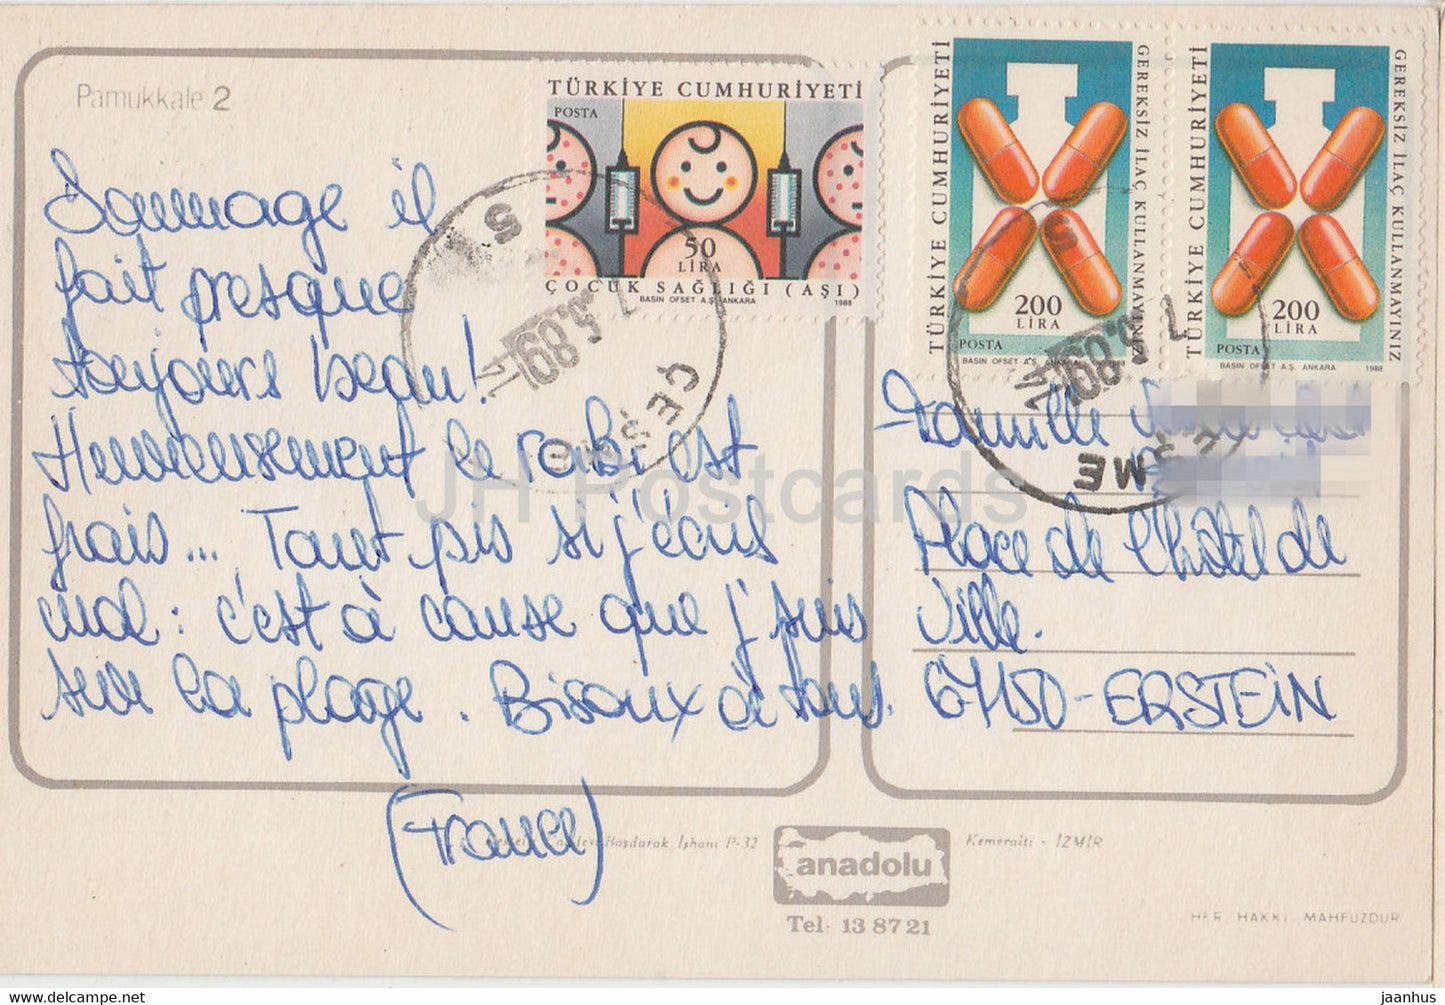 Pamukkale 2
TÜRKİYE CUMHURİYETİ
POSTA
50
LİRA
ÇOCUK SAĞLIĞI (AŞI)
BASIN OFSET A.Ş. ANKARA 1988
TÜRKİYE CUMHURİYETİ
GEREKSİZ İLAÇ KULLANMAYINIZ
200
LİRA
POSTA
BASIN OFSET A.Ş. ANKARA
TÜRKİYE CUMHURİYETİ
GEREKSİZ İLAÇ KULLANMAYINIZ
200
LİRA
POSTA
BASIN OFSET A.Ş. ANKARA 1988
ÇEŞME
ÇEŞME
Dommage il
fait presque
toujours beau!
Heureusement le raki est
frais... Tant pis si j'écris
mal : c'est à cause que j'suis
sur la plage. Bisoux à tous.
Famille
Place de l'hôtel de
Ville.
67150 - ERSTEIN
(France)
Başdurak İşhanı P-32
Kemeraltı - İZMİR
anadolu
Tel: 13 87 21
HER HAKKI MAHFUZDUR
JH Postcards
www.delcampe.net
jaanhus